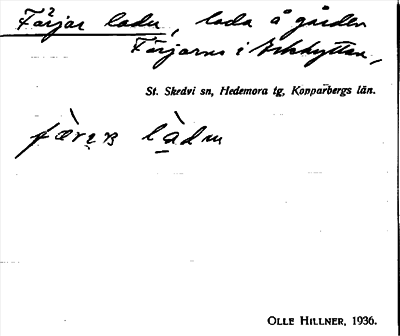 Färjar ladu, lada å gården
Färjarns i Arkhyttan,
St. Skedvi sn, Hedemora tg, Kopparbergs län.
OLLE HILLNER, 1936.